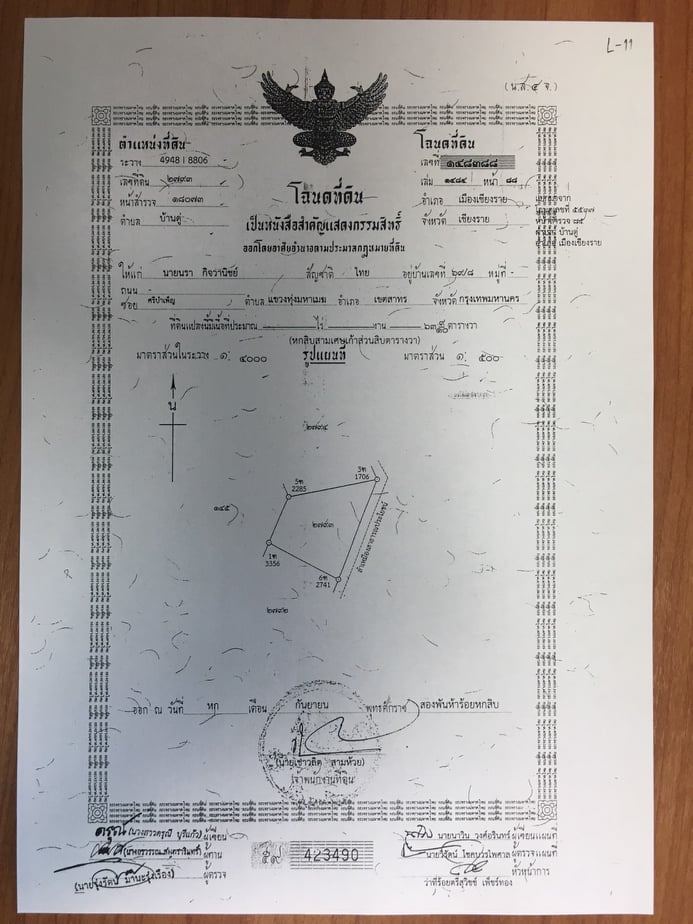 L-11
(น.ส.๔ จ.)
ตำแหน่งที่ดิน
ระวาง 4948 I 8806
เลขที่ดิน ๒๗๙๓
หน้าสำรวจ ๑๘๐๗๓
ตำบล บ้านดู่
โฉนดที่ดิน
เลขที่ ๑๔๘๓๘๘
เล่ม ๑๔๘๔ หน้า ๘๘
อำเภอ เมืองเชียงราย
จังหวัด เชียงราย
หน้าสำรวจ ๘๕
ตำบล บ้านดู่
อำเภอ เมืองเชียงราย
โฉนดที่ดิน
เป็นหนังสือสำคัญแสดงกรรมสิทธิ์
ออกโดยอาศัยอำนาจตามประมวลกฎหมายที่ดิน
ให้แก่ นายนรา กิจวานิชย์ สัญชาติ ไทย อยู่บ้านเลขที่ ๖๙/๘ หมู่ที่ -
ถนน
ซอย ศรีบำเพ็ญ ตำบล แขวงทุ่งมหาเมฆ อำเภอ เขตสาทร จังหวัด กรุงเทพมหานคร
ที่ดินแปลงนี้มีเนื้อที่ประมาณ ไร่ งาน ๖๓ ๙/๑๐ ตารางวา
(หกสิบสามเศษเก้าส่วนสิบตารางวา)
มาตราส่วนในระวาง ๑: ๔๐๐๐ รูปแผนที่ มาตราส่วน ๑: ๕๐๐
น
๒๗๙๔
3ฑ
1706
3ฑ
2285
๑๔๕
๒๗๙๓
ลำเหมืองสาธารณประโยชน์
1ฑ
3356
6ฑ
2741
๒๗๙๒
ออก ณ วันที่ หก เดือน กันยายน พุทธศักราช สองพันห้าร้อยหกสิบ
(นายเชาวลิต สามห้วย)
เจ้าพนักงานที่ดิน
ผู้เขียน
ผู้ทาน
ผู้ตรวจ
๕๙ 423490
นายนาวิน วงศ์อรินทร์ ผู้เขียนแผนที่
นายวิรัตน์ โชคบวรไพศาล ผู้ตรวจแผนที่
หัวหน้าการ
ว่าที่ร้อยตรีสุวิชช์ เพ็ชร์ทอง